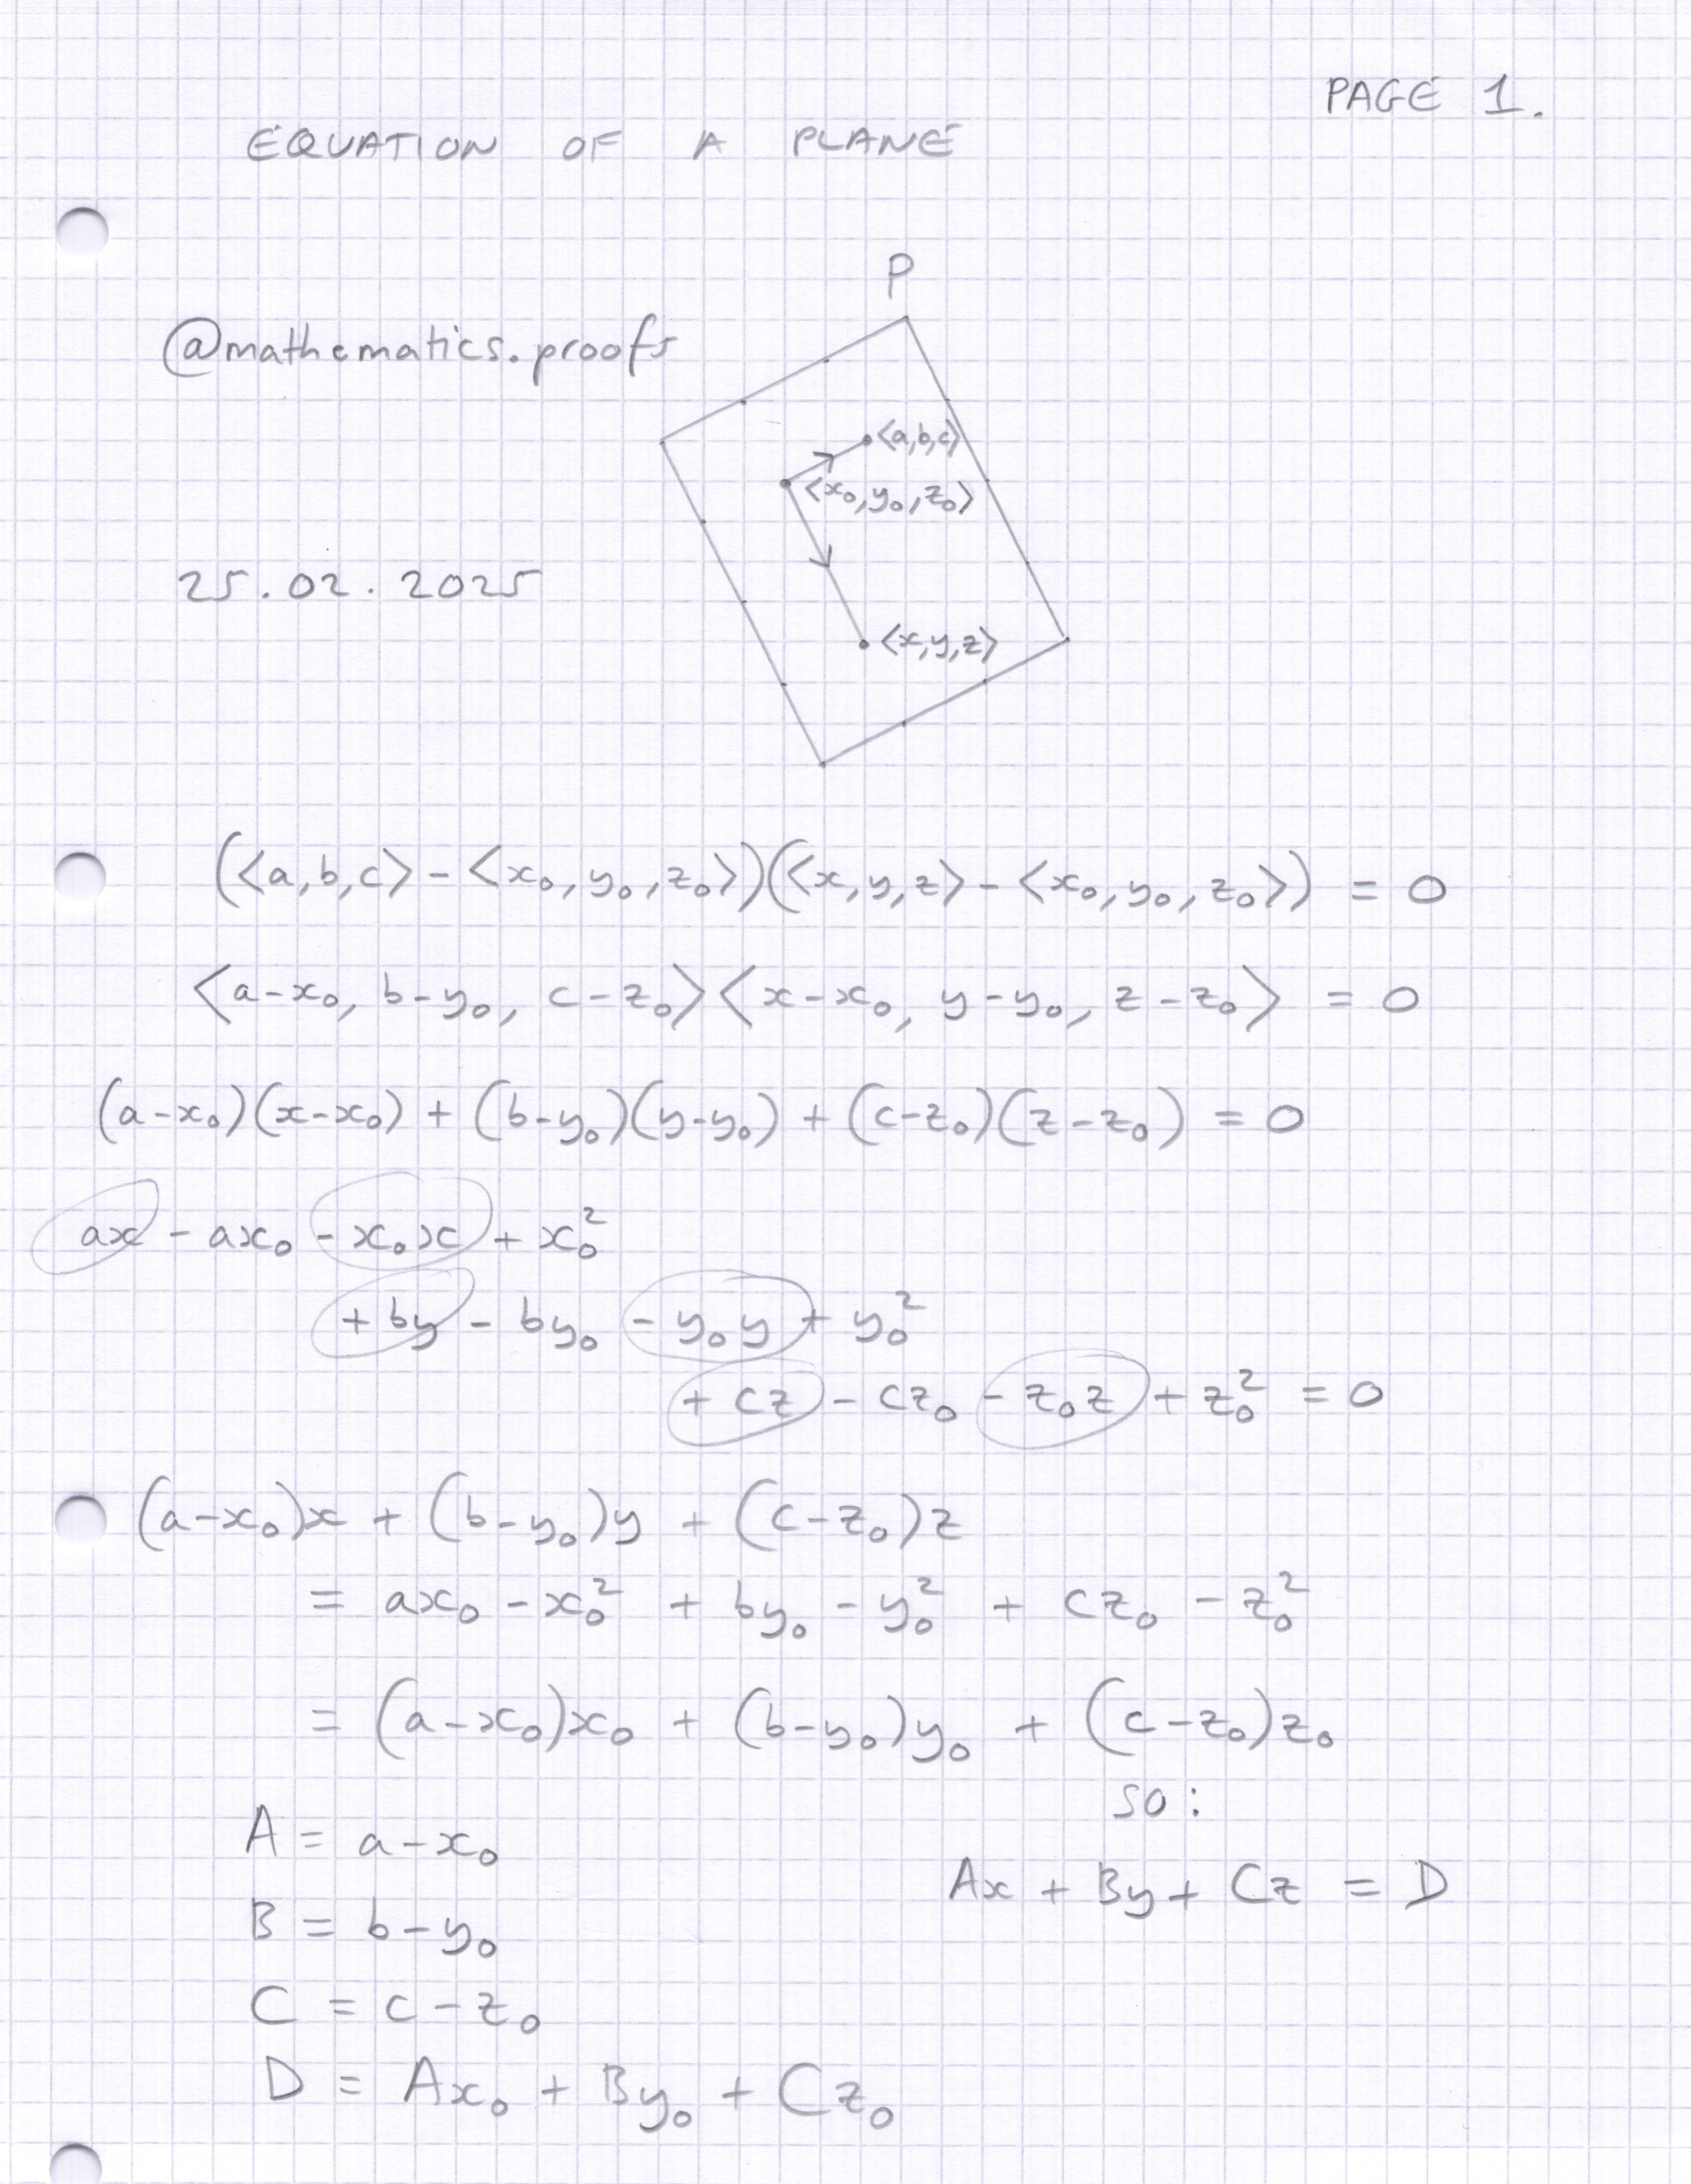 PAGE 1.
EQUATION OF A PLANE
P
@mathematics.proofs
<a,b,c>
<x₀,y₀,z₀>
25.02.2025
<x,y,z>
(<a,b,c>-<x₀,y₀,z₀>)(<x,y,z>-<x₀,y₀,z₀>) = 0
<a-x₀, b-y₀, c-z₀><x-x₀, y-y₀, z-z₀> = 0
(a-x₀)(x-x₀) + (b-y₀)(y-y₀) + (c-z₀)(z-z₀) = 0
ax - ax₀ - x₀x + x₀²
+ by - by₀ - y₀y + y₀²
+ cz - cz₀ - z₀z + z₀² = 0
(a-x₀)x + (b-y₀)y + (c-z₀)z
= ax₀ - x₀² + by₀ - y₀² + cz₀ - z₀²
= (a-x₀)x₀ + (b-y₀)y₀ + (c-z₀)z₀
so:
A = a-x₀
Ax + By + Cz = D
B = b-y₀
C = c-z₀
D = Ax₀ + By₀ + Cz₀